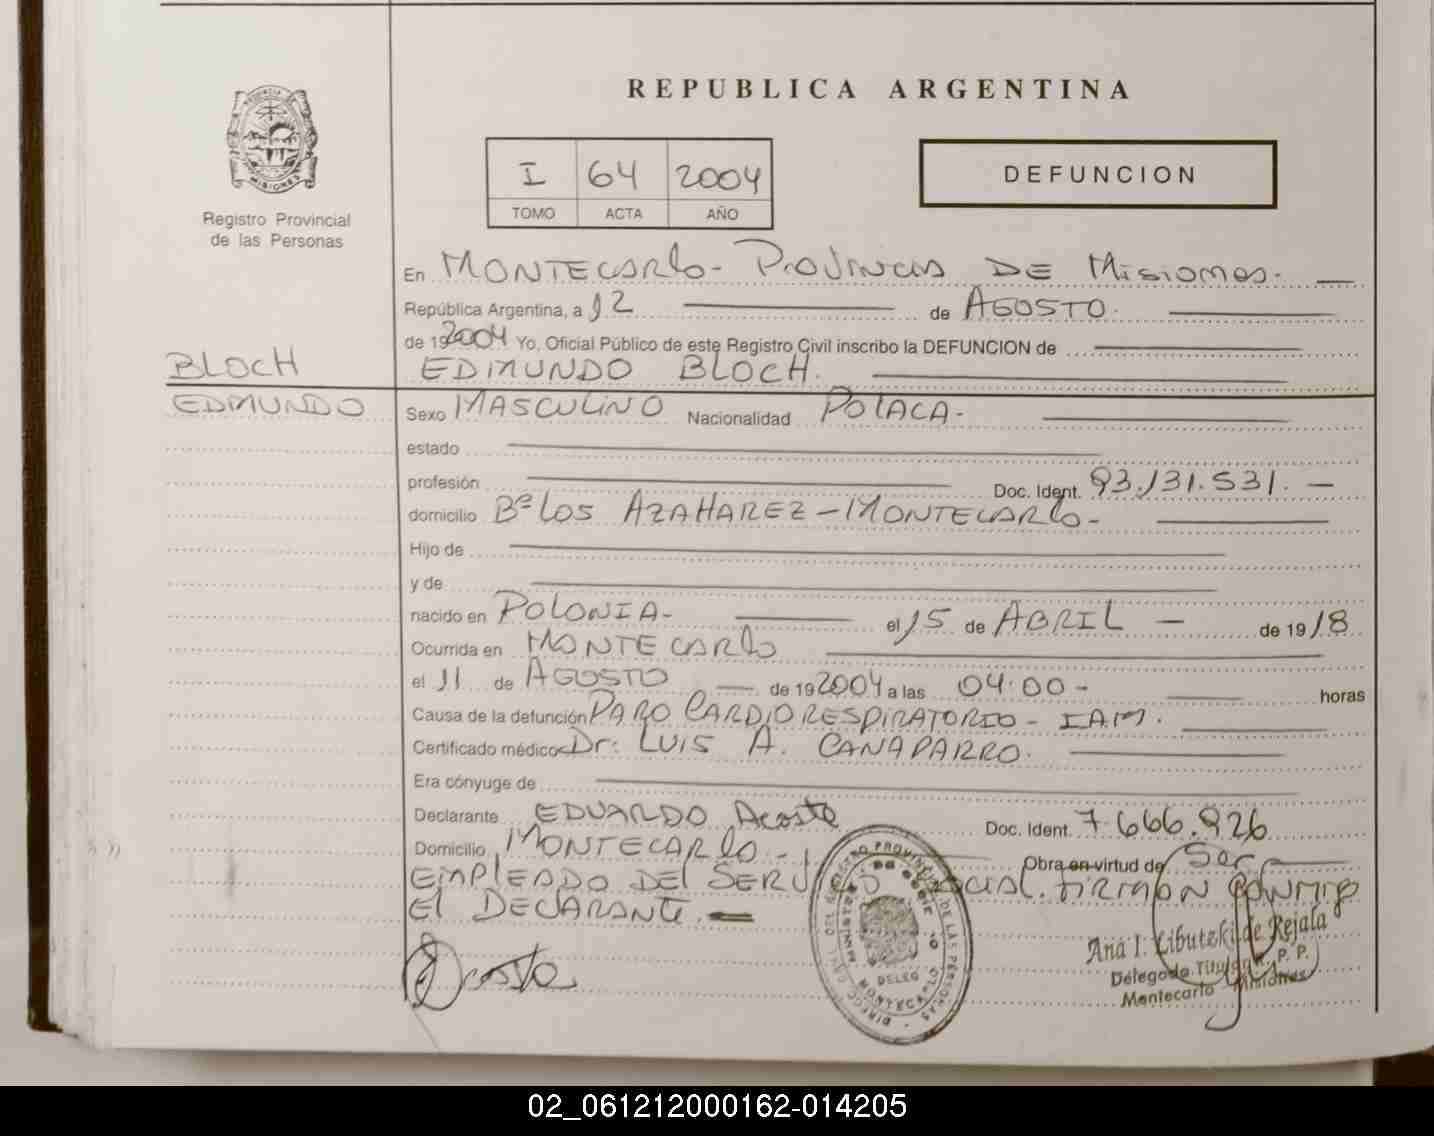 REPUBLICA ARGENTINA
PROVINCIA DE
MISIONES
Registro Provincial
de las Personas
I 64 2004
TOMO ACTA AÑO
DEFUNCION
En MONTECARLO - PROVINCIA DE MISIONES.
República Argentina, a 12 de AGOSTO.
de 192004 Yo, Oficial Público de este Registro Civil inscribo la DEFUNCION de
BLOCH
EDMUNDO
EDMUNDO BLOCH.
Sexo MASCULINO Nacionalidad POLACA -
estado
profesión Doc. Ident. 93.131.531. -
domicilio Bº LOS AZAHAREZ - MONTECARLO -
Hijo de
y de
nacido en POLONIA - el 15 de ABRIL - de 1918
Ocurrida en MONTECARLO
el 11 de AGOSTO de 192004 a las 04:00 - horas
Causa de la defunción PARO CARDIORESPIRATORIO - IAM.
Certificado médico Dr: LUIS A. CANAPARRO.
Era cónyuge de
Declarante EDUARDO Acosta Doc. Ident. 7.666.926
Domicilio MONTECARLO - Obra en virtud de Ser
EMPLEADO DEL SERVICIO SOCIAL. FIRMAN CONMIGO
El DECLARANTE.
Acosta
MONTECARLO
DELEG
Ana I. Libutzki de Rejala
Delegada Titular R. P. P.
Montecarlo Misiones
02_061212000162-014205